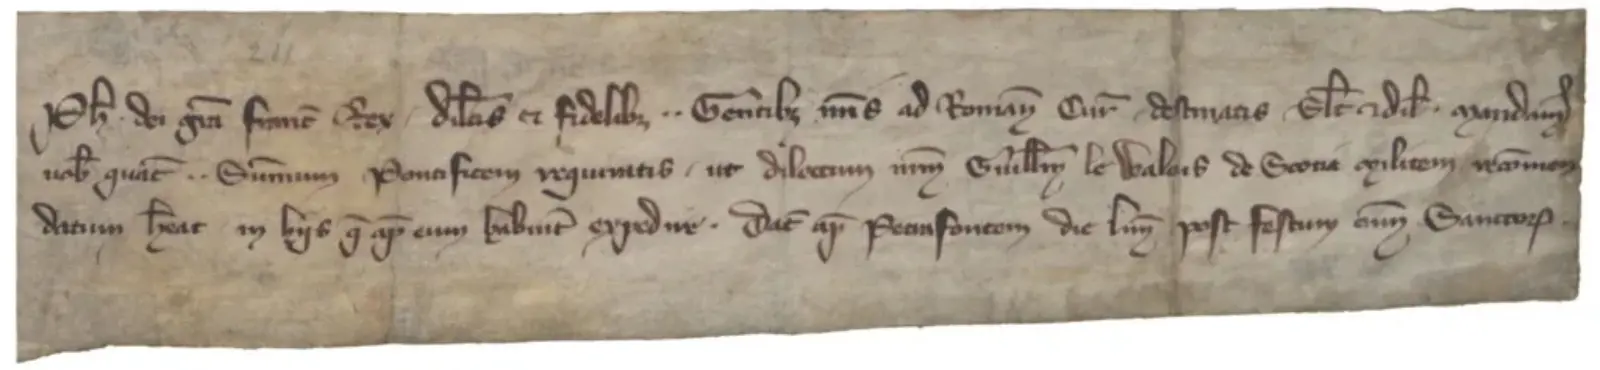 211
Ph. dei gra franc Rex dilcis et fidelib; .. Gentib; nris ad Roman Cur destinatis Salt et dil. Mandam
vob quat .. Summum Pontificem requiratis ut dilectum nrm Guillm le Walois de Scotia militem recomen
datum heat in hiis q ap eum habuit expedire. Dat ap Petrafontem die lun post festum omn Sanctor